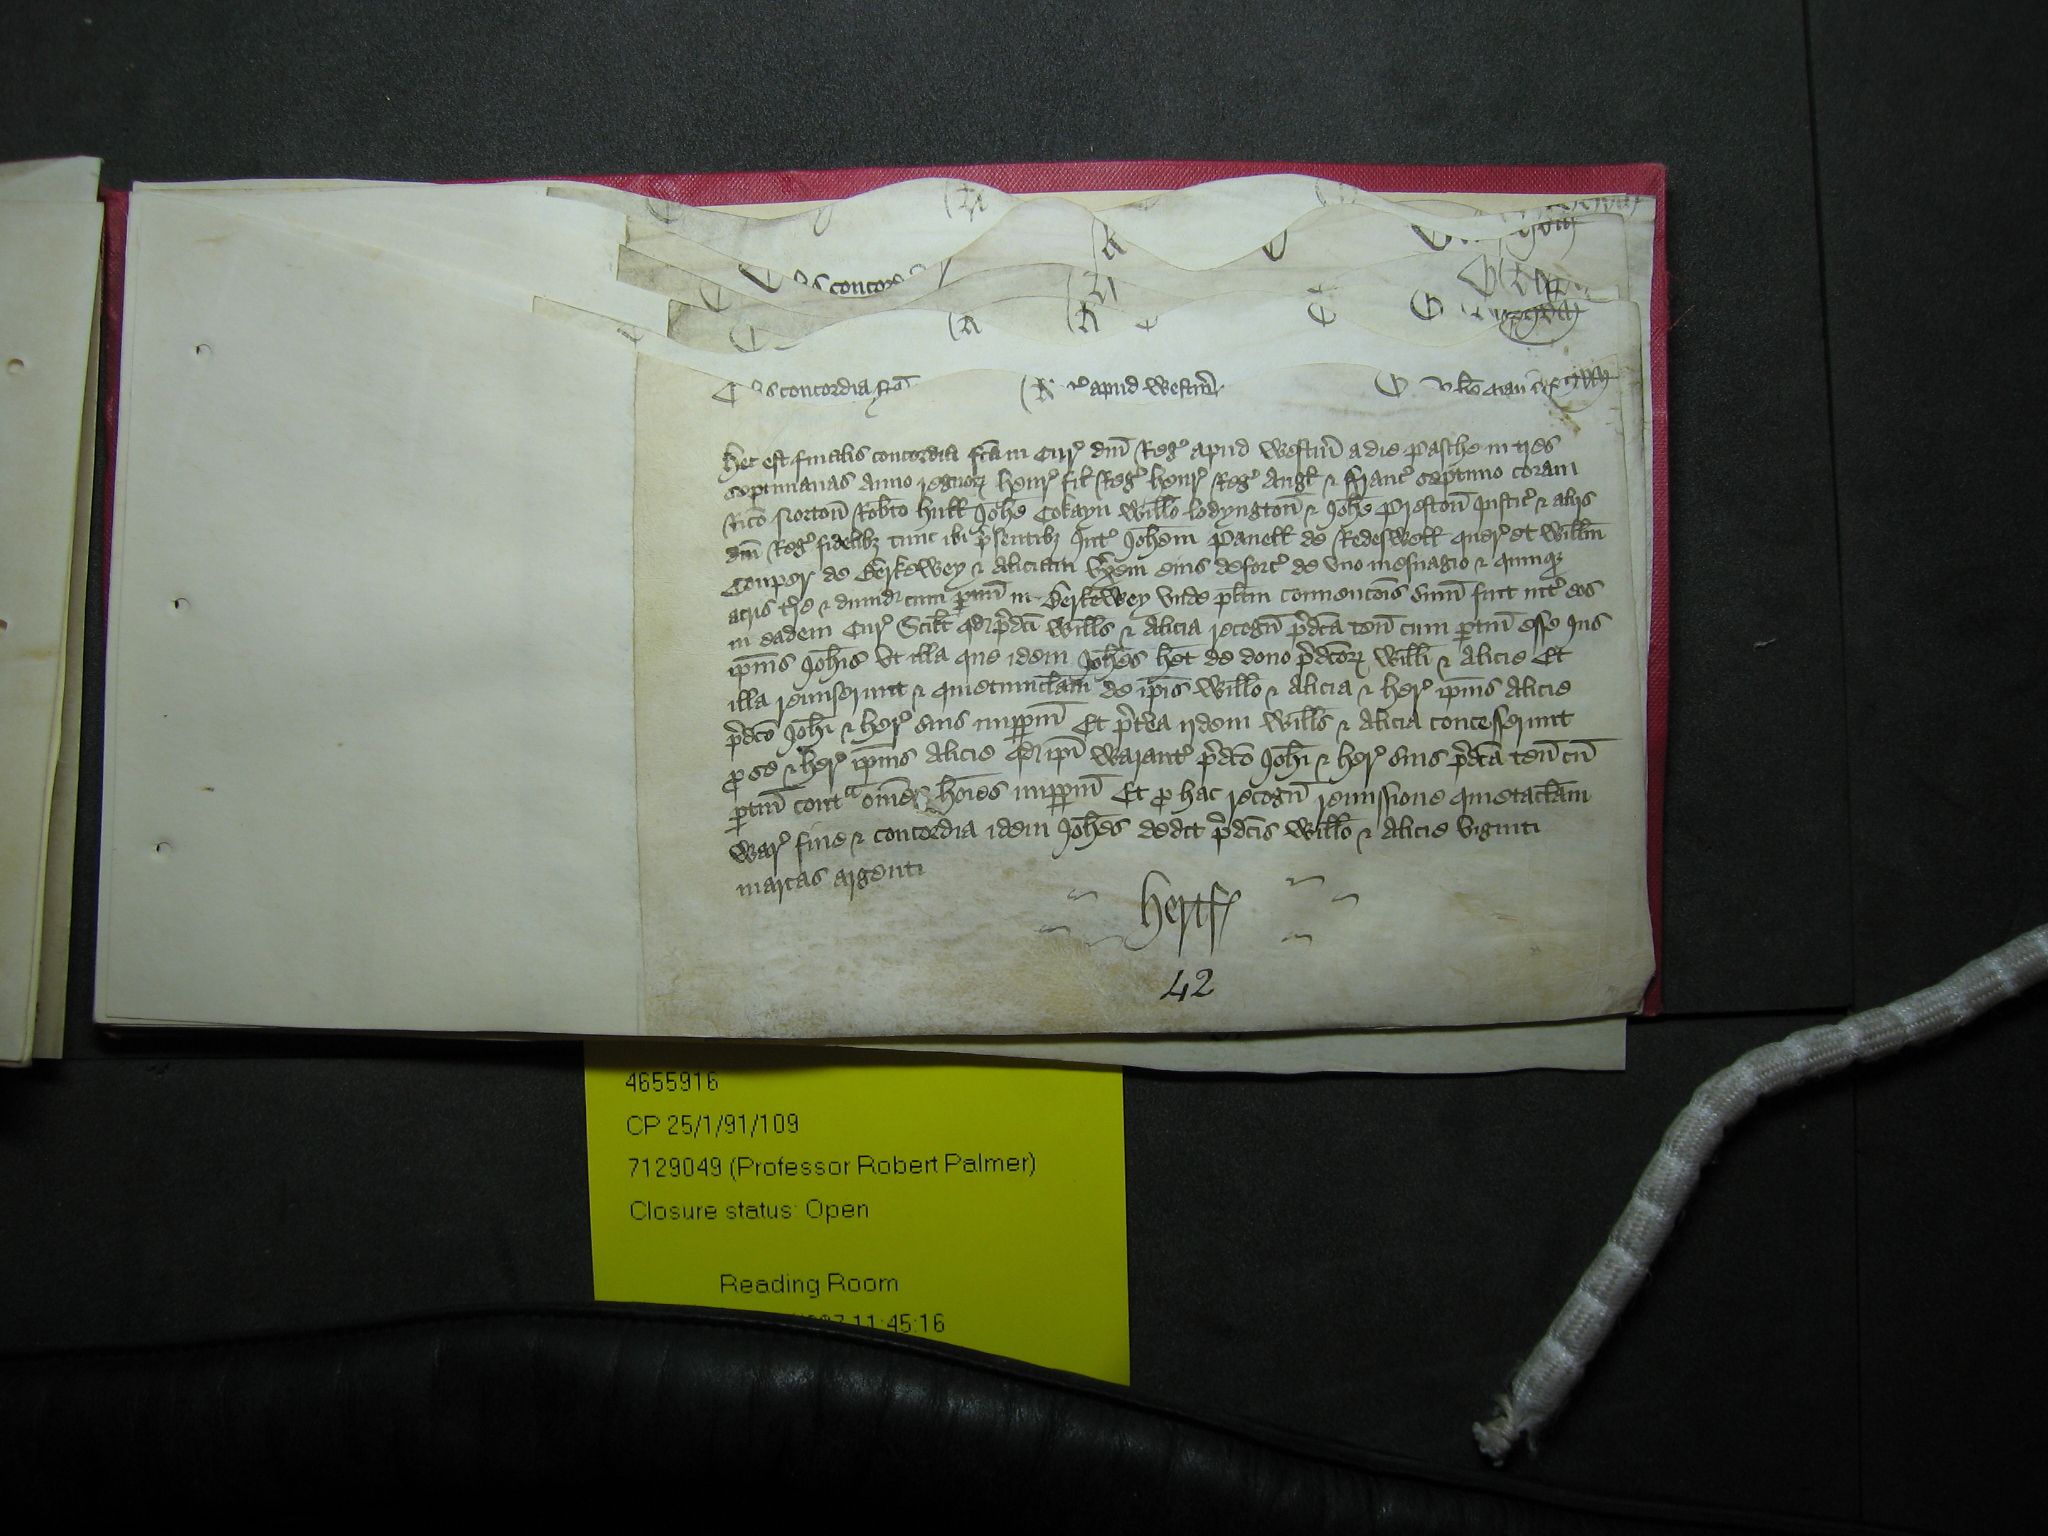 Hec est finalis concordia fc̄a in Cur̉ dm̄ Reg̉ apud Westm̄ a die Pasche in tres
septimanas anno regnoꝝ Henr̉ fil̄ Reg̉ Henr̉ Reg̉ Angl̄ & Franc̉ septimo coram
Ric̄o Norton̄ Rob̄to Hull Joh̄e Cokayn Willo Lodyngton̄ & Joh̄e Preston̄ Justic̉ & aliis
dm̄ Reg̉ fidelibꝫ tunc ibi p̄sentibꝫ Int̉ Joh̄em Panell de Redeswell quer̉ et Willm̄
Couper de Berkewey & Aliciam vx̄em eius deforc̉ de vno mesuagio & quinqꝫ
acris tr̄e & dimid cum ptin̄ in Berkewey vnde pl̄tm conuenc̄ois sum̄ fuit int̉ eos
in eadem Cur̉ Scil̄t qd p̄dc̄i Wills & Alicia recogn̄ p̄dc̄a ten̄ cum ptin̄ esse Jus
ip̄ius Joh̄is vt illa que idem Joh̄es h̄et de dono p̄dc̄oꝝ Willi & Alicie Et
illa remiserunt & quietumclam̄ de ip̄is Willo & Alicia & her̉ ip̄ius Alicie
p̄dc̄o Joh̄i & her̉ suis imppm̄ Et p̄tea ijdem Wills & Alicia concesserunt
p se & her̉ ip̄ius Alicie qd ip̄i Warant̉ p̄dc̄o Joh̄i & her̉ suis p̄dc̄a ten̄ cū
ptin̄ contᵃ om̄es ho̅ies imppm̄ Et p hac recogn̄ remissione quietaclam̄
War̉ fine & concordia idem Joh̄es dedit p̄dc̄is Willo & Alicie viginti
marcas argenti
Hertf̉
42
4655916
CP 25/1/91/109
7129049 (Professor Robert Palmer)
Closure status: Open
Reading Room
11:45:16